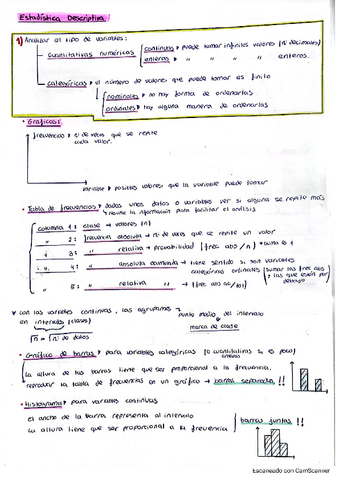 Estadística Descriptiva:
1) Analizar el tipo de variables:
cuantitativas numéricas
continuas → puede tomar infinitos valores (ℕ decimales)
enteras → " " " " enteros.
categóricas → el número de valores que puede tomar es finito
nominales → no hay forma de ordenarlas
ordinales → hay alguna manera de ordenarlas
• Gráficas:
frecuencias → nº de veces que se repite
cada valor.
variable → posibles valores que la variable puede tomar
• Tabla de frecuencias → dados unos datos o variables ver si alguna se repite más
→ resume la información para facilitar el análisis
columna 1: clase → valores (n)
" 2: frecuencia absoluta → nº de veces que se repite un valor
" 3: " relativa → probabilidad (frec abs/n) * suma es 1
" 4: " absoluta acumulada → tiene sentido si son variables
categóricas ordinales (sumar las frec abs
y las que están por
debajo)
" 5: " relativa " → (frec abs ac/tot)
* con las variables continuas, las agrupamos
en intervalos (clases)
punto medio del intervalo
marca de clase
√n = √nº de datos
• Gráfico de barras → para variables categóricas (o cuantitativas si es poco)
enteras
La altura de las barras tiene que ser proporcional a la frecuencia.
reproducir la tabla de frecuencias en un gráfico → barras separadas!!
• Histograma → para variables continuas
el ancho de la barra representa al intervalo
La altura tiene que ser proporcional a la frecuencia
barras juntas!!
Escaneado con CamScanner